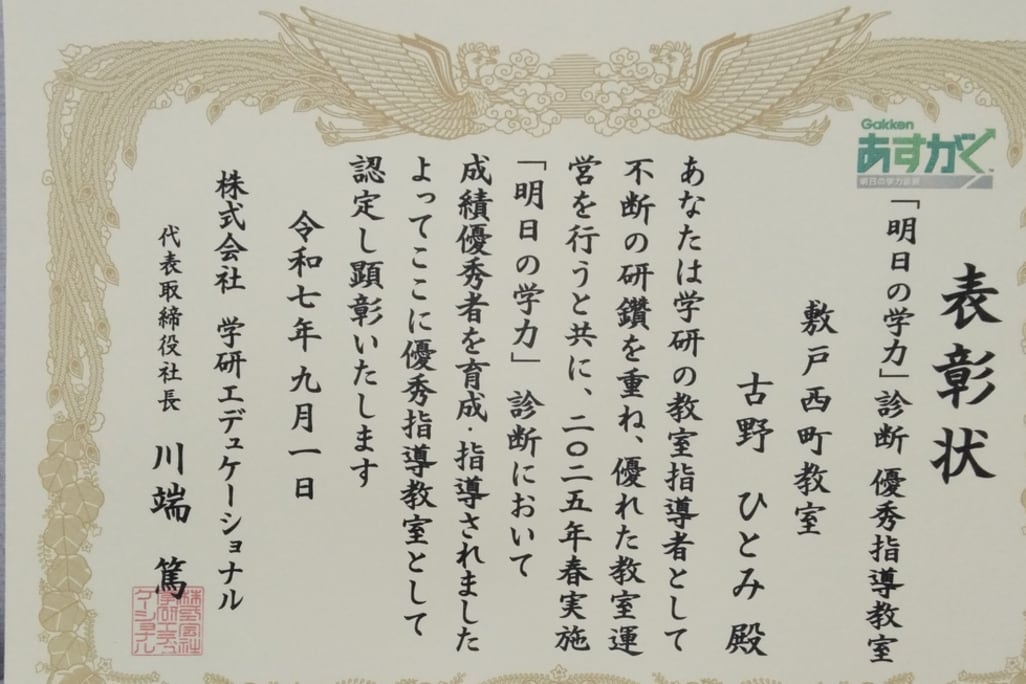 Gakken
あすがく
明日の学力診断
表彰状
「明日の学力」診断 優秀指導教室
敷戸西町教室
古野 ひとみ 殿
あなたは学研の教室指導者として
不断の研鑽を重ね、優れた教室運
営を行うと共に、二〇二五年春実施
「明日の学力」診断において
成績優秀者を育成・指導されました
よってここに優秀指導教室として
認定し顕彰いたします
令和七年九月一日
株式会社 学研エデュケーショナル
代表取締役社長 川端 篤
株式会社
学研エデュ
ケーショナル